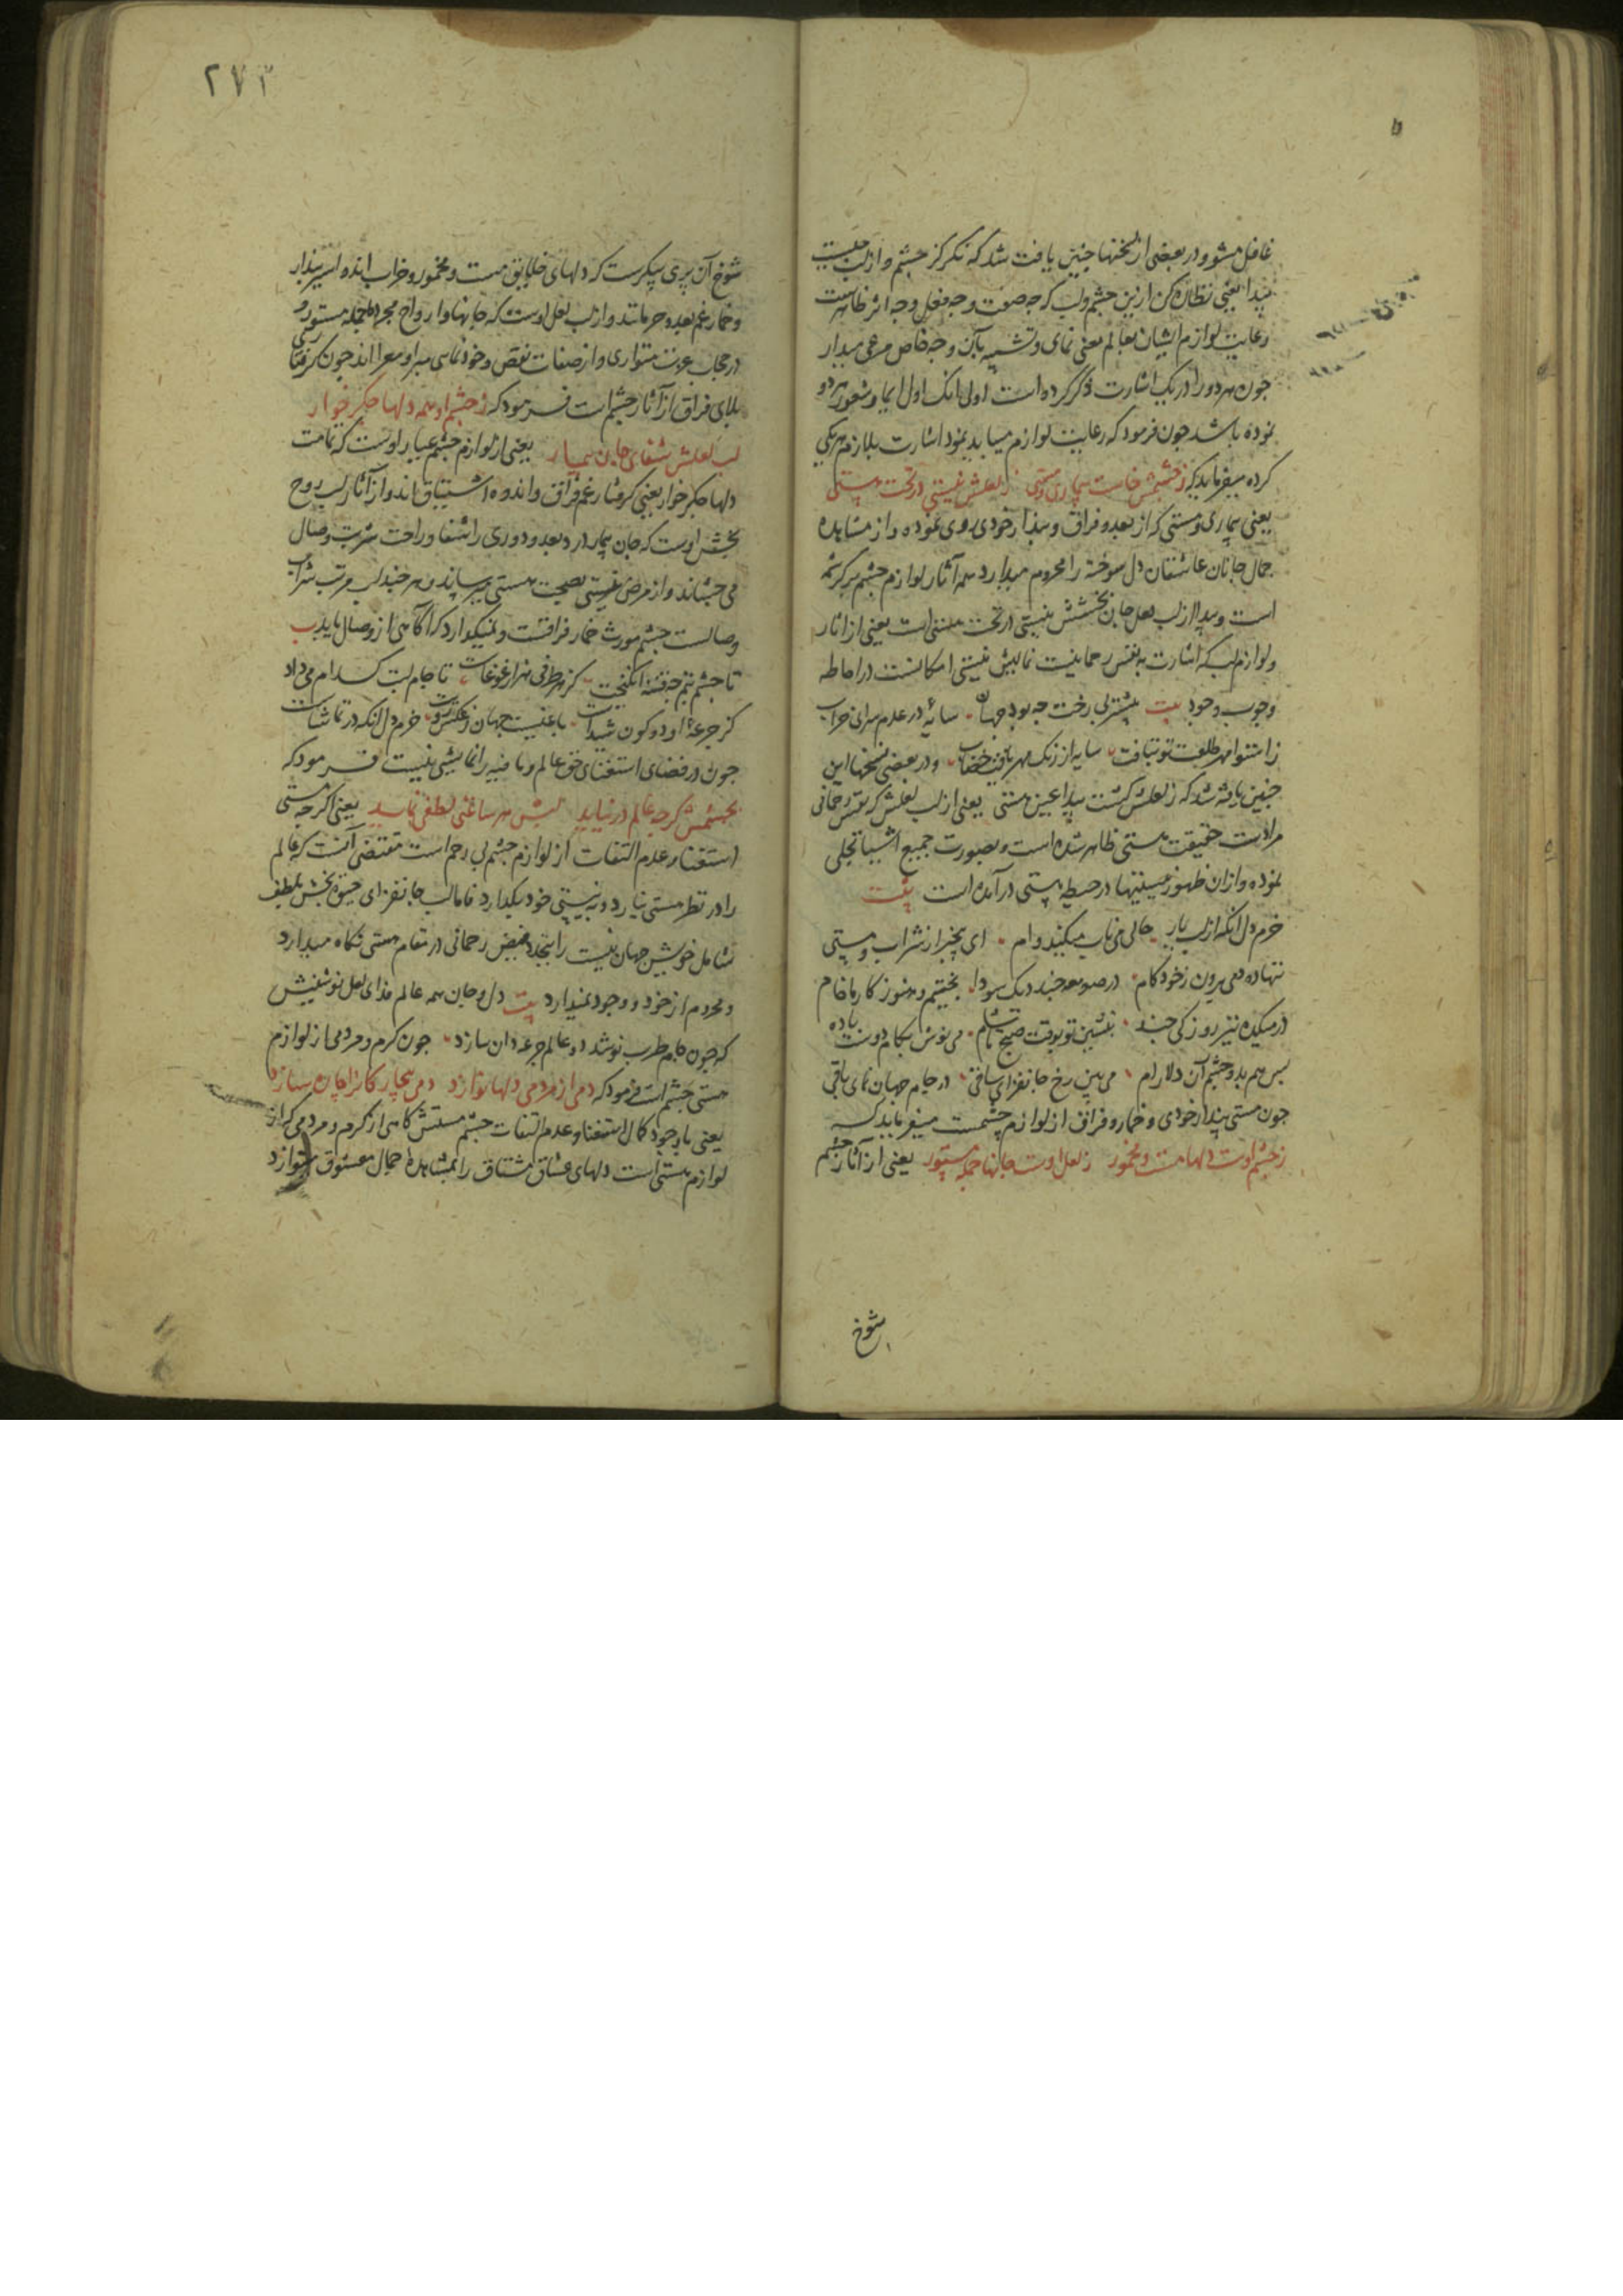 غافل مشو و در بعضی از نسخها چنین یافت شد که نکر کز چشم و از لب چیست
پیدا یعنی نظاره کن ازین چشم و لب که چه صفت و چه فعل و چه اثر ظاهرست
رعایت لوازم ایشان بعالم معنی نمای و تشبیه بآن وجه خاص مرعی میدار
چون هر دو را در یک اشارت ذکر کرده است اولی آنک اول ایما و شعور بهر دو
نموده باشد چون فرمود که رعایت لوازم میباید نمود اشارت بلازم هر یکی
کرده میفرماید که ز چشمش خاست بیماری و مستی ز لعلش نیستی در تحت هستی
یعنی بیماری و مستی که از بعد و فراق و پندار خودی روی نموده و از مشاهده
جمال جانان عاشقان دل سوخته را محروم میدارد همه آثار لوازم چشم پر کرشمه
است و پیدا از لب لعل جان بخشش نیستی در تحت هستی است یعنی از آثار
و لوازم لب که اشارت به نفس رحمانیست نمایش نیستی امکانست در احاطه
وجوب وجود بیت پیشتر بی رخت چه بود جهان سایهٔ در عدم سرای خراب
ز استوا مهر طلعت تو بتافت سایه از رنک مهر یافت خضاب و در بعضی نسخها این
چنین یافته شد که ز لعلش کشت پیدا عین هستی یعنی از لب لعلش که نفس رحمانی
مرادست حقیقت هستی ظاهر شده است و بصورت جمیع اشیا تجلی
نموده و از آن ظهور نیستیها در حیطه هستی در آمده است بیت
خرم دل آنکه از لب یار حالی می ناب میکند وام ای بیخبر از شراب و مستی
ننهاده دمی برون ز خود کام در صومعه چند دیک سودا بختیم و هنوز کار ما خام
در میکده نیز روزکی چند بنشین تو بوقت صبح تا شام می نوش بکام دوست باده
بس هم بدو چشم آن دلارام می بین رخ جانفزای ساقی در جام جهان نمای باقی
چون مستی پندار خودی و خمار و فراق از لوازم چشمست میفرماید که
ز چشم اوست دلها مست و مخمور ز لعل اوست جانها جمله مستور یعنی از آثار چشم
شوخ
۲۷۳
شوخ آن پری پیکرست که دلهای خلایق مست و مخمور و خراب اند و اسیر پندار
و خمار غم بعد و حرمانند و از لب لعل اوست که جانها و ارواح مجرده جمله مستور و
در حجاب عزت متواری و از صفات نقص و خودنمایی مبرا و معرا اند چون کرفتاری
بلای فراق از آثار چشم است فرمود که ز چشم او همه دلها جکر خوار
لب لعلش شفای جان بیمار یعنی از لوازم چشم عیار اوست که تمامت
دلها جکر خوار یعنی کرفتار غم فراق و اندوه اشتیاق اند و از آثار لب روح
بخش اوست که جان بیمار درد بعد و دوری را شفا و راحت شربت وصال
می چشاند و از مرض نیستی بصحت هستی میرساند و هر چند لب مرتب شراب
وصالست چشم مورث خمار فراقست و نمیکذارد که آکاهی از وصال یابد بیت
تا چشم تو چه فتنه انکیخت کز هر طرفی هزار غوغاست تا جام لبت کدام می داد
کز جرعهٔ او دو کون شیداست با غیبت جهان و عکس رویت خرم دل آنکه در تماشاست
چون در فضای استغنای حق عالم و ما فیه را نمایشی نیست فرمود که
بچشمش کرچه عالم در نیاید لبش هر ساعتی لطفی نماید یعنی اکرچه مستی
استغنا و عدم التفات که از لوازم چشم بی رحم است مقتضی آنست که عالم
را در نظر هستی نیارد و به نیستی خود بکذارد فاما لب جانفزای حیوة بخش بلطف
شامل خویش جهان نیست را بتجدد فیض رحمانی در مقام هستی نکاه میدارد
و محروم از خود و وجود نمیدارد بیت دل و جان همه عالم فدای لعل نوشینش
که چون جام طرب نوشد دو عالم جرعه دان سازد چون کرم و مردمی از لوازم
مستی چشم است فرمود که دمی از مردمی دلها نوازد دمی بیچارکانرا چاره سازد
یعنی با وجود کمال استغنا و عدم التفات چشم مستش کاهی از کرم و مردمی که از
لوازم مستی است دلهای عشاق مشتاق را بمشاهده جمال معشوق بنوازد